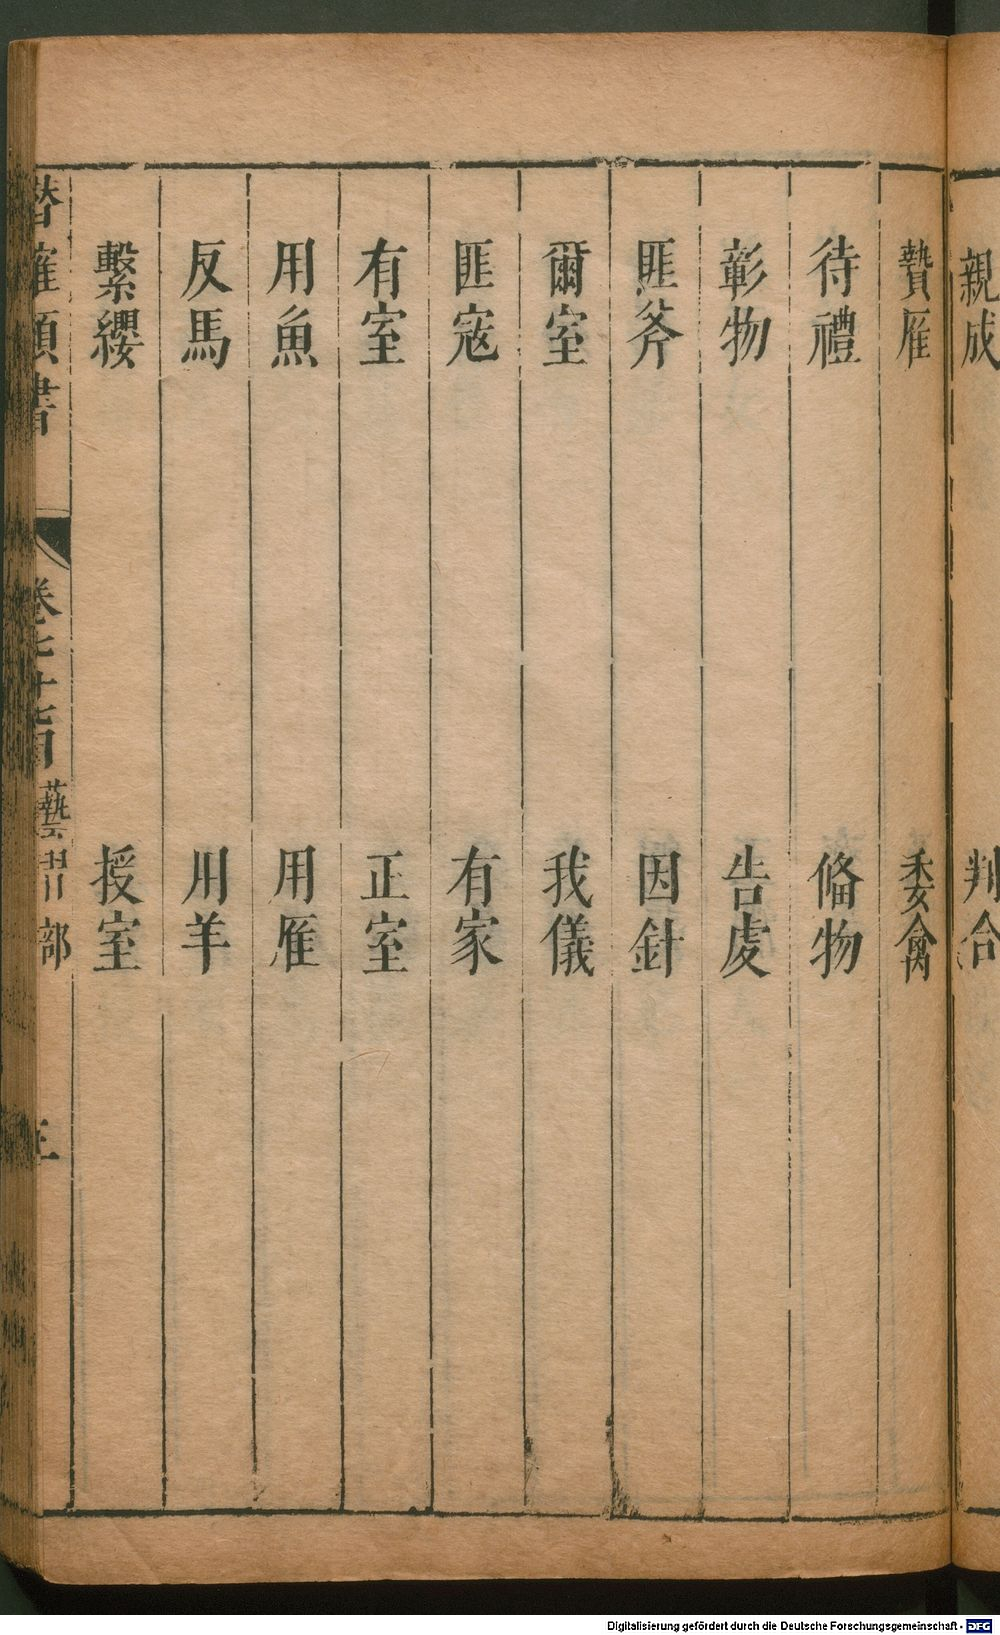 親成
判合
贄雁
委禽
待禮
備物
彰物
告虔
匪斧
因針
爾室
我儀
匪寇
有家
有室
正室
用魚
用雁
反馬
用羊
繫纓
授室
潛確類書
卷七十七目
藝習部
三
Digitalisierung gefördert durch die Deutsche Forschungsgemeinschaft - DFG